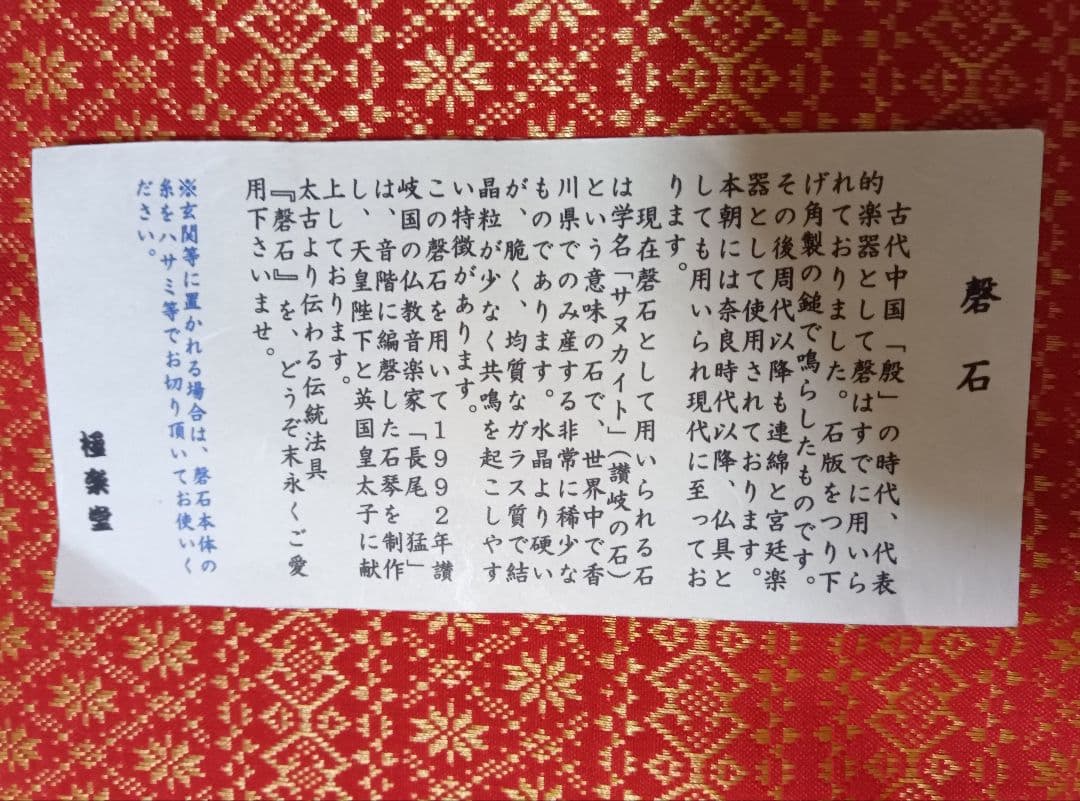 磬石
古代中国「殷」の時代、代表
的楽器として磬はすでに用いら
れておりました。石版をつり下
げ角製の鎚で鳴らしたものです。
その後周代以降も連綿と宮廷楽
器として使用されております。
本朝には奈良時代以降、仏具と
しても用いられ現代に至ってお
ります。
現在磬石として用いられる石
は学名「サヌカイト」(讃岐の石)
という意味の石で、世界中で香
川県でのみ産する非常に稀少な
ものであります。水晶より硬い
が、脆く、均質なガラス質で結
晶粒が少なく共鳴を起こしやす
い特徴があります。
この磬石を用いて1992年讃
岐国の仏教音楽家「長尾 猛」
は、音階に編磬した石琴を制作
し、天皇陛下と英国皇太子に献
上しております。
太古より伝わる伝統法具
『磬石』を、どうぞ末永くご愛
用下さいませ。
※玄関等に置かれる場合は、磬石本体の
糸をハサミ等でお切り頂いてお使いく
ださい。
極楽堂